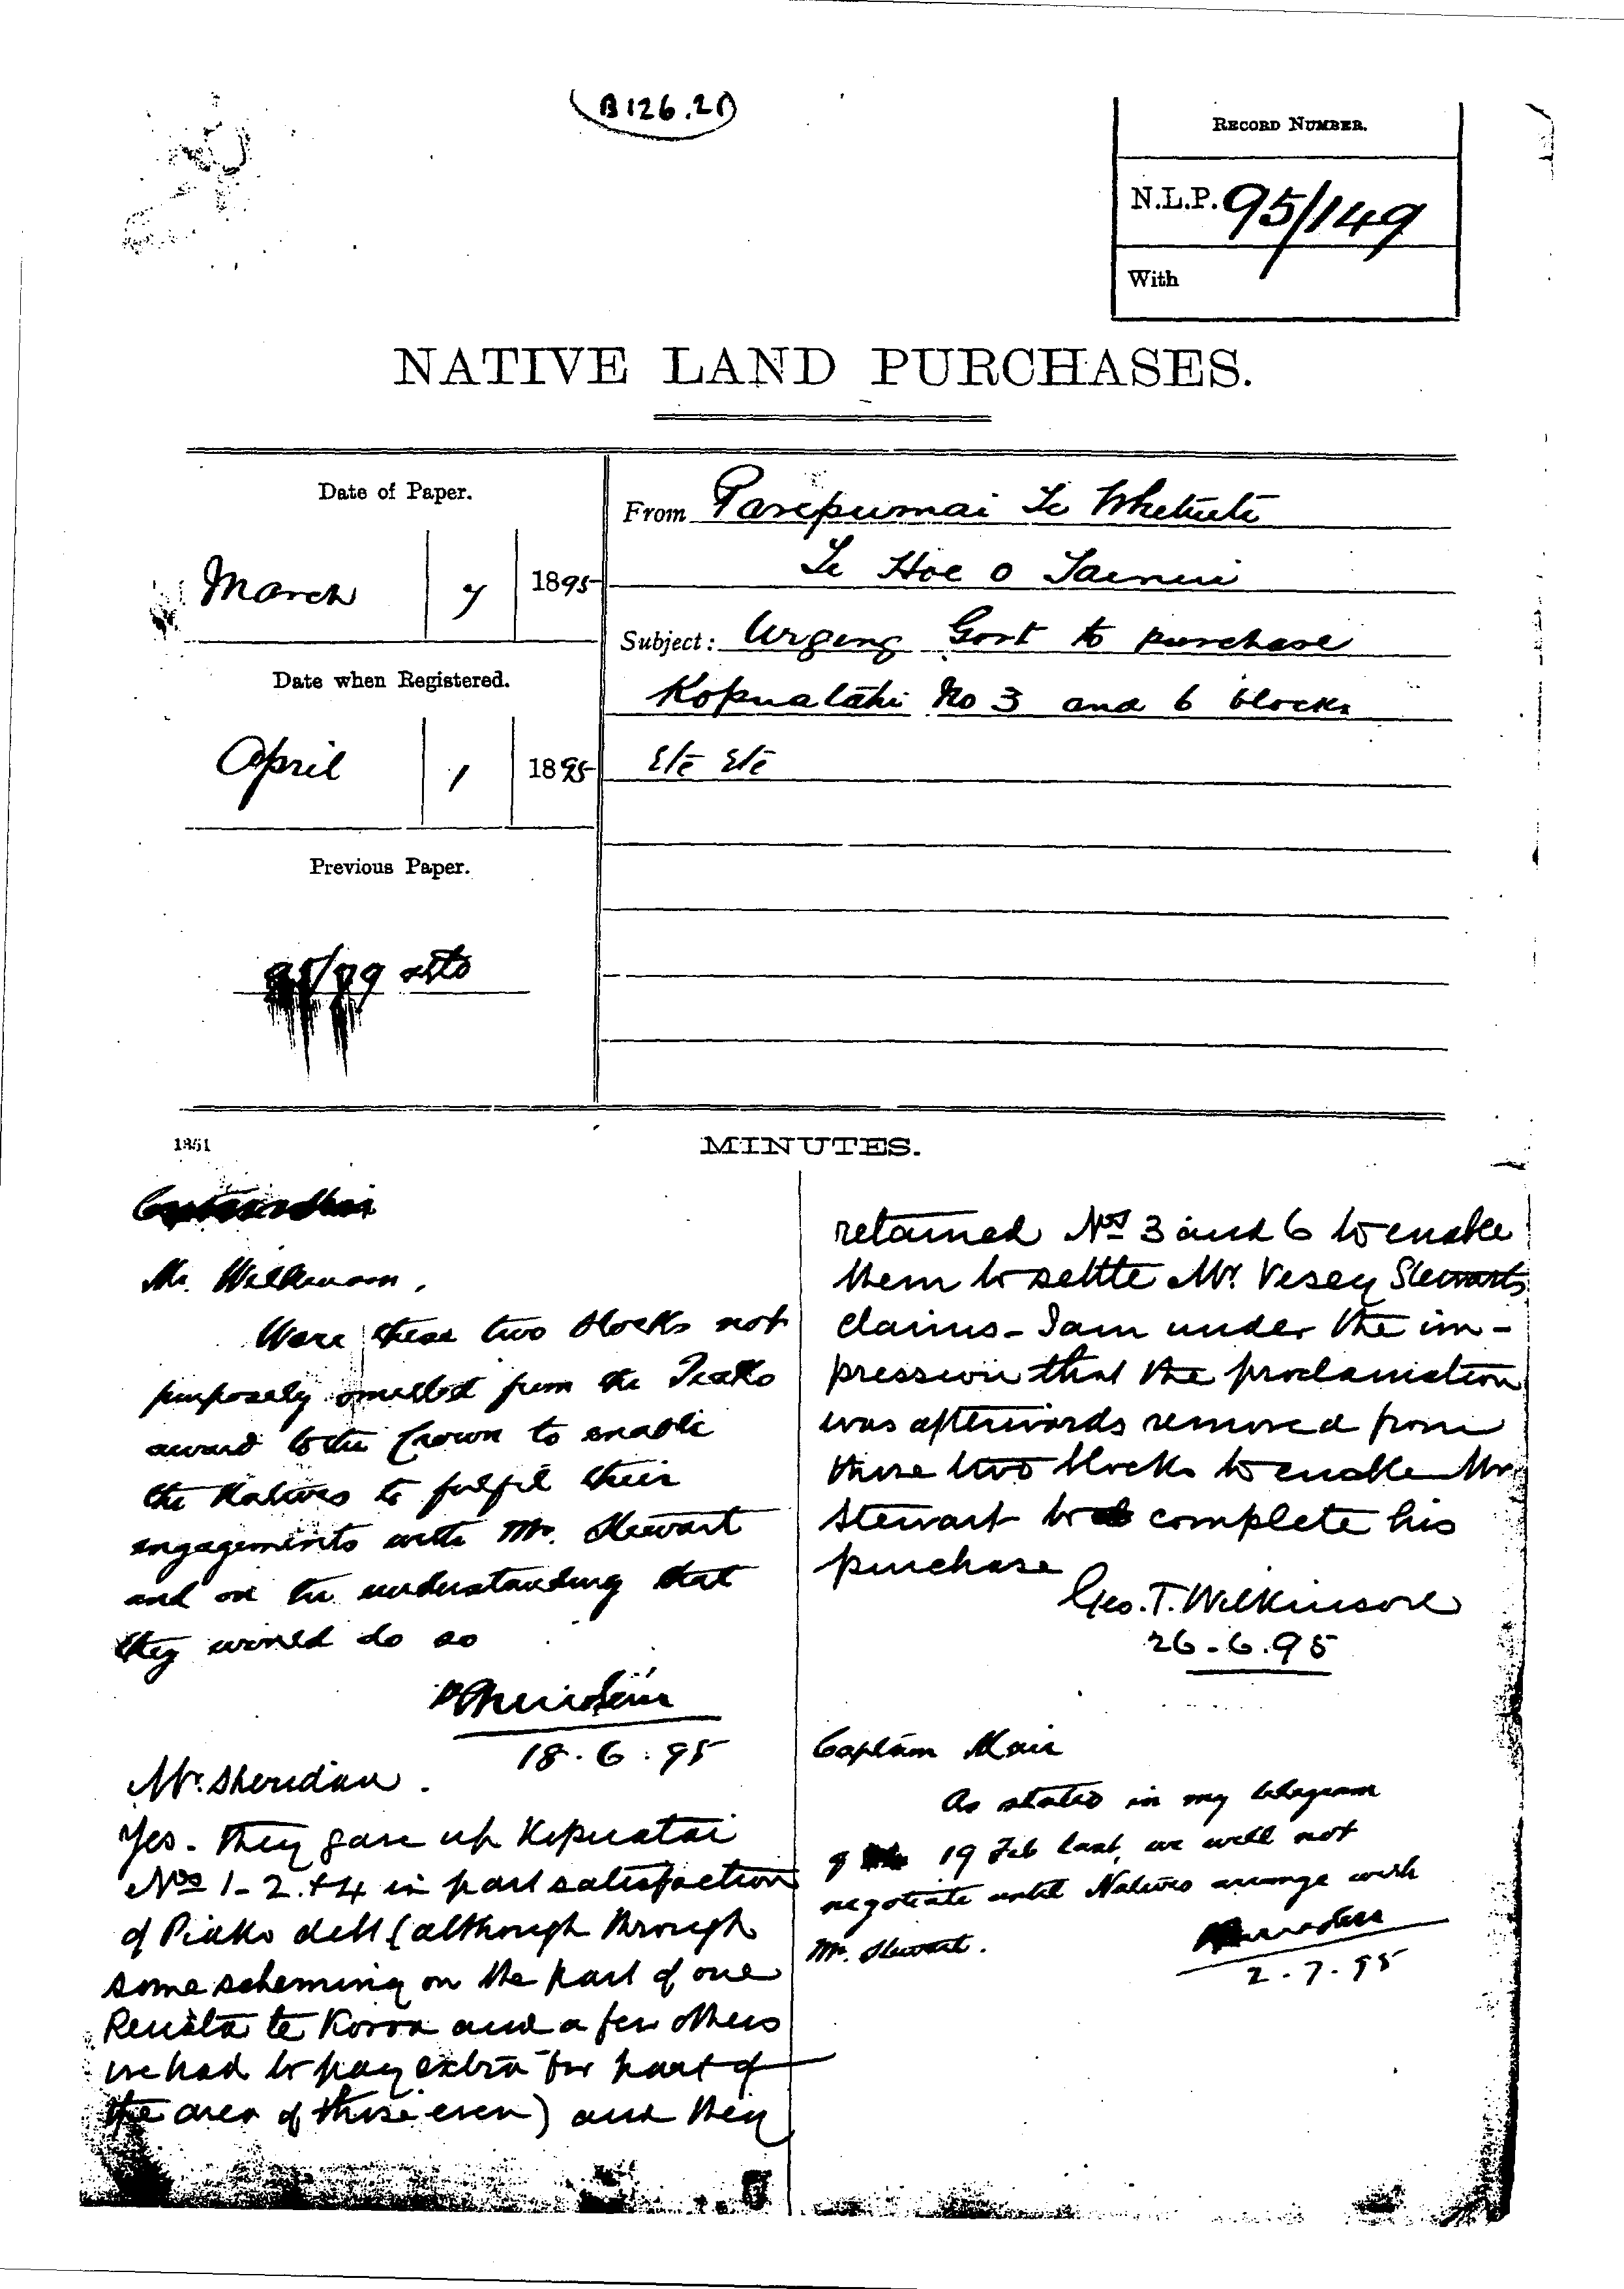 B126.20
RECORD NUMBER.
N.L.P. 95/149
With
NATIVE LAND PURCHASES.
Date of Paper.
March 7 1895
Date when Registered.
April 1 1895
Previous Paper.
95/79
From Parepumai Te Whetuiti
Te Hoe o Tainui
Subject: Urging Govt to purchase
Kopuatahi No 3 and 6 blocks
Etc Etc
1351
MINUTES.
Mr. Wilkinson,
Were these two blocks not
purposely omitted from the Piako
award to the Crown to enable
the Natives to fulfil their
engagements with Mr. Stewart
and on the understanding that
they would do so
PSheridan
18.6.95
Mr. Sheridan.
Yes. They gave up Kopuatai
Nos 1-2.+4 in part satisfaction
of Piako debt (although through
some scheming on the part of one
Renata te and a few others
we had to pay extra for part of
the area of those even) and they
retained Nos 3 and 6 to enable
them to settle Mr. Vesey Stewarts
claims - I am under the im-
pression that the proclamation
was afterwards removed from
those two blocks to enable Mr
Stewart to complete his
purchase
Geo. T. Wilkinson
26-6.95
Captain Mair
As stated in my telegram
of 19 Feb last, we will not
negotiate until Natives arrange with
Mr. Stewart.
PSheridan
2.7.95